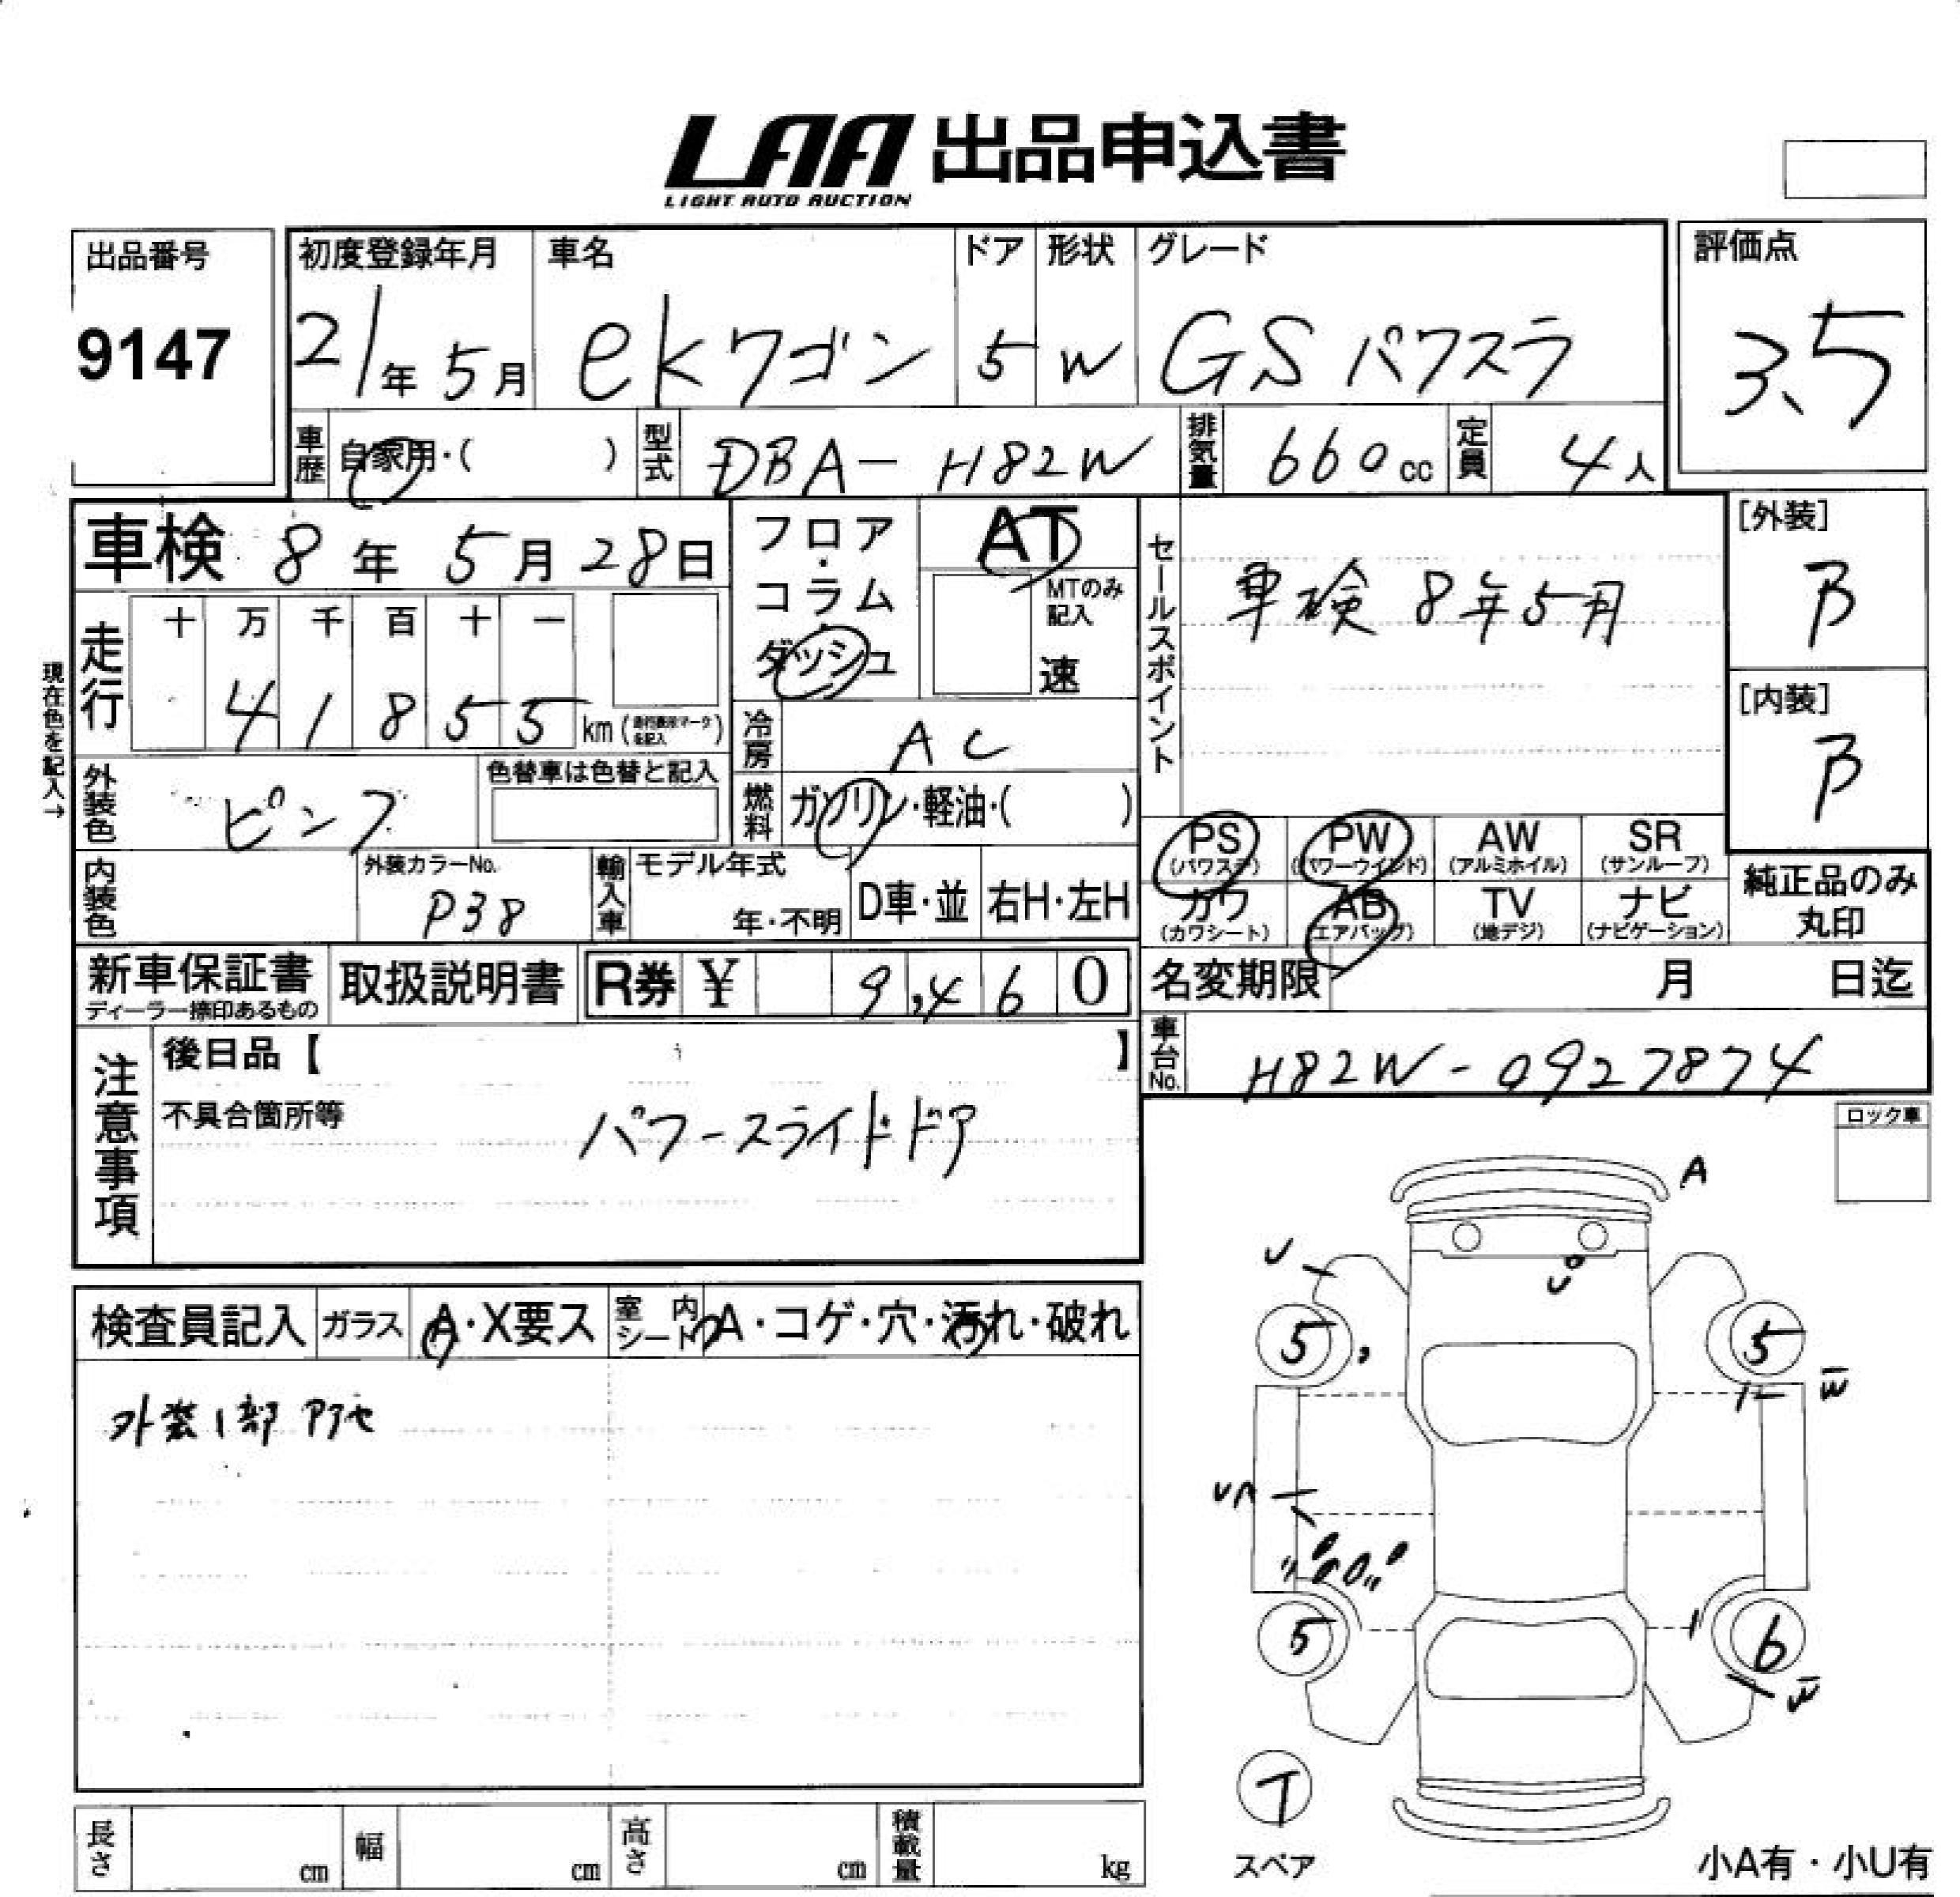 LAA 出品申込書
LIGHT AUTO AUCTION
出品番号
9147
初度登録年月
21年 5月
車名
ekワゴン
ドア
5
形状
W
グレード
GS パワスラ
評価点
3.5
車歴
自家用・( )
型式
DBA-H82W
排気量
660cc
定員
4人
車検 8年 5月 28日
フロア・コラム・ダッシュ
AT
MTのみ記入
速
セールスポイント
車検 8年5月
[外装]
B
[内装]
B
現在色を記入→
走行
十 万 千 百 十 一
4 1 8 5 5 km (走行表示マークを記入)
冷房
AC
外装色
ピンク
色替車は色替と記入
燃料
ガソリン・軽油・( )
内装色
外装カラーNo.
P38
輸入車
モデル年式
年・不明
D車・並
右H・左H
PS (パワステ)
PW (パワーウインド)
AW (アルミホイル)
SR (サンルーフ)
カワ (カワシート)
AB (エアバッグ)
TV (地デジ)
ナビ (ナビゲーション)
純正品のみ丸印
新車保証書
ディーラー捺印あるもの
取扱説明書
R券 ¥ 9,460
名変期限 月 日迄
車台No.
H82W-0927874
注意事項
後日品【 】
不具合箇所等
パワースライドドア
ロック車
検査員記入
ガラス
A・X要ス
室内シート
A・コゲ・穴・汚れ・破れ
外装1部アセ
A
U
U
5
5
W
UA
5
6
W
T
スペア
小A有・小U有
長さ cm
幅 cm
高さ cm
積載量 kg